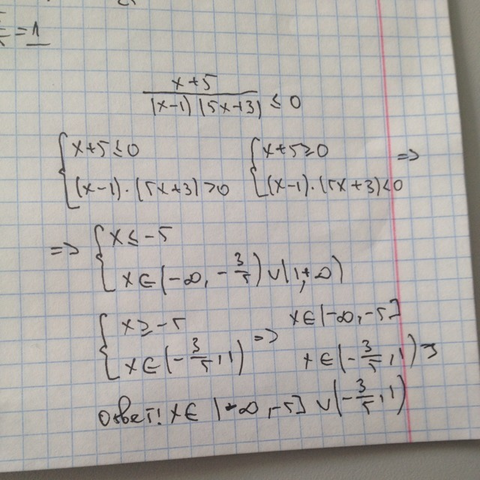 = 1
x+5 / (x-1)(5x+3) ≤ 0
{ x+5≤0 { x+5≥0 =>
(x-1)·(5x+3)>0 (x-1)·(5x+3)<0
=> { x≤-5
x∈(-∞, -3/5)∪(1,+∞)
{ x≥-5 => x∈(-∞,-5]
x∈(-3/5,1) x∈(-3/5,1)
Ответ! x∈(-∞,-5]∪(-3/5,1)